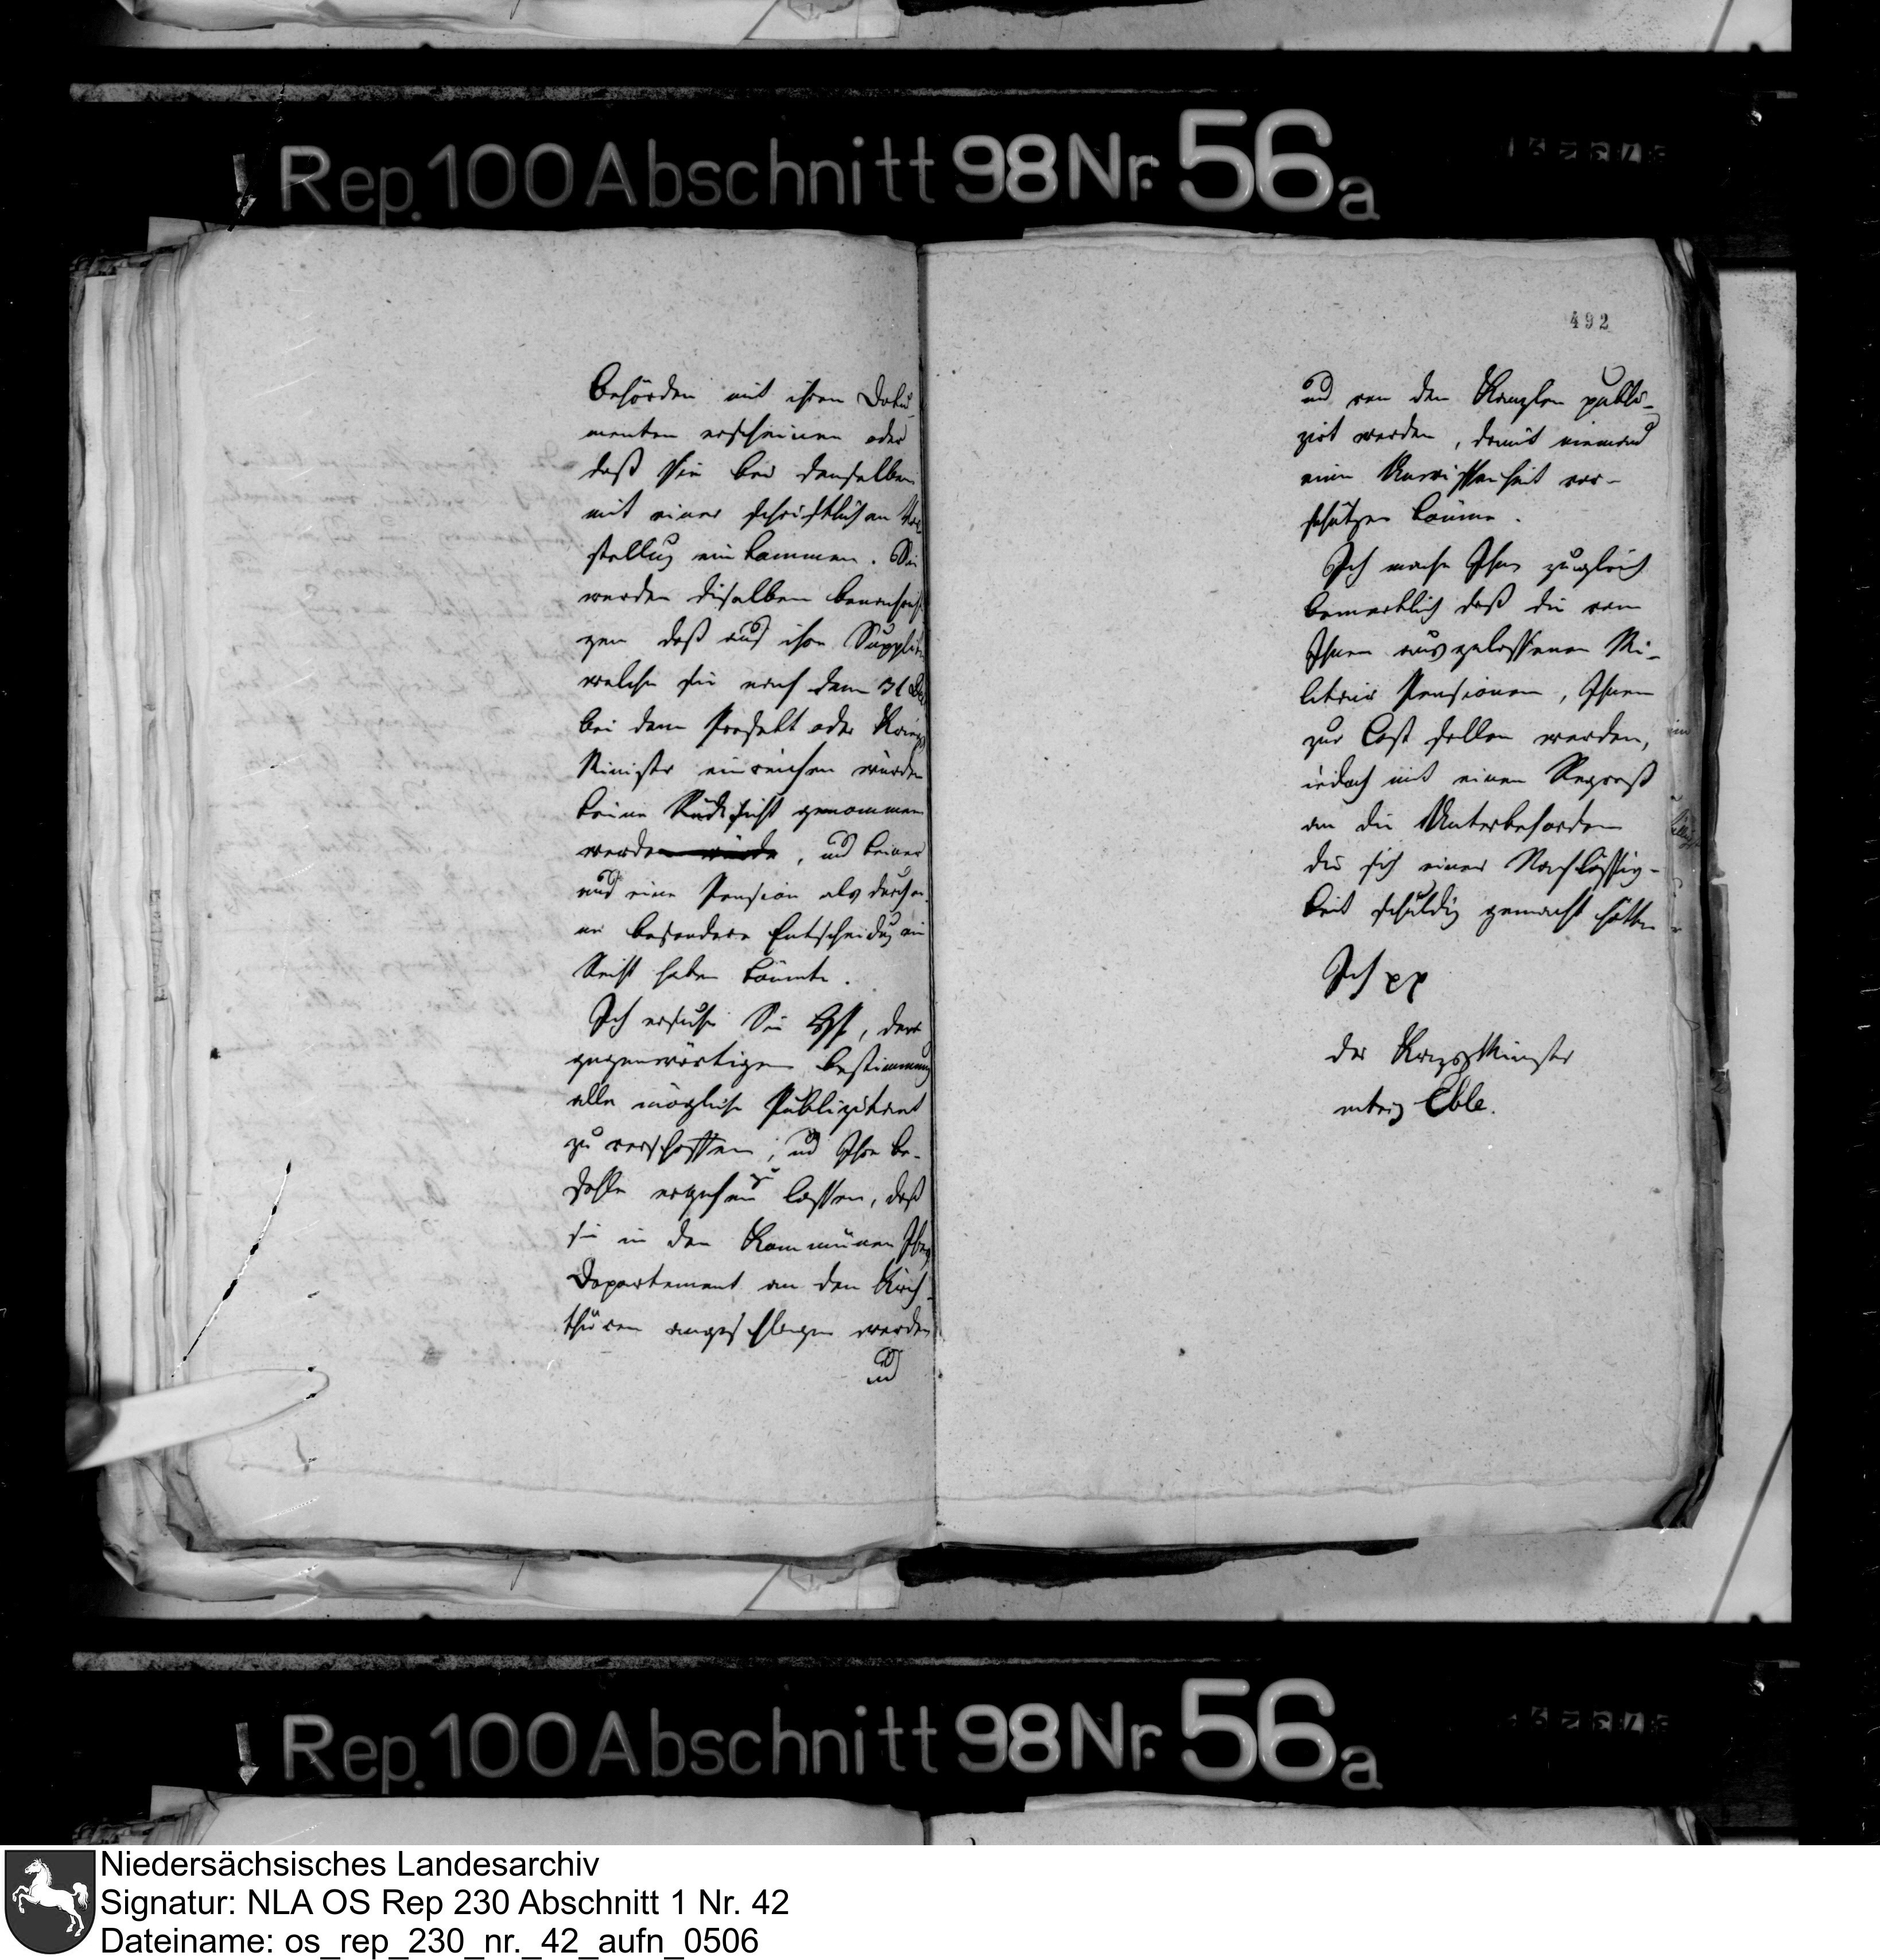 Rep. 100 Abschnitt 98 Nr. 56a
behörden mit ihren Doku-
menten erscheinen oder
daß sie bei denselben
mit einer schriftlichen Vor
stellung einkommen. Sie
werden dieselben benachrich
gen daß auf ihre Suppliken
welche sie nach dem 31
bei dem Präfekt oder Kriegs
Minister einreichen würden
keine Rücksicht genommen
werden würde, und keiner
auf eine Pension als durch
besondere Entscheidung ein
Recht haben könnte.
Ich ersuche Sie, der
gegenwärtigen Bestimmung
alle mögliche Publizitaet
zu verschaffen, und Ihre Be-
fehle ergehen zu lassen, daß
sie in den Kommünen Ihres
Departement an den Kirch-
thüren angeschlagen werden
und
492
und von den Kanzlen publi-
zirt werden, damit niemand
eine Unwissenheit vor-
schützen könne.
Ich mache Ihnen zugleich
bemerklich daß die von
Ihnen ausgelassenen Mi-
litair Pensionen, Ihnen
zur Last fallen werden,
jedoch mit einem Regreß
an die Unterbehörden
die sich einer Nachlässig-
keit schuldig gemacht hätten
Ich pp
der Kriegs Minister
Eble.
Rep. 100 Abschnitt 98 Nr. 56a
Niedersächsisches Landesarchiv
Signatur: NLA OS Rep 230 Abschnitt 1 Nr. 42
Dateiname: os_rep_230_nr._42_aufn_0506